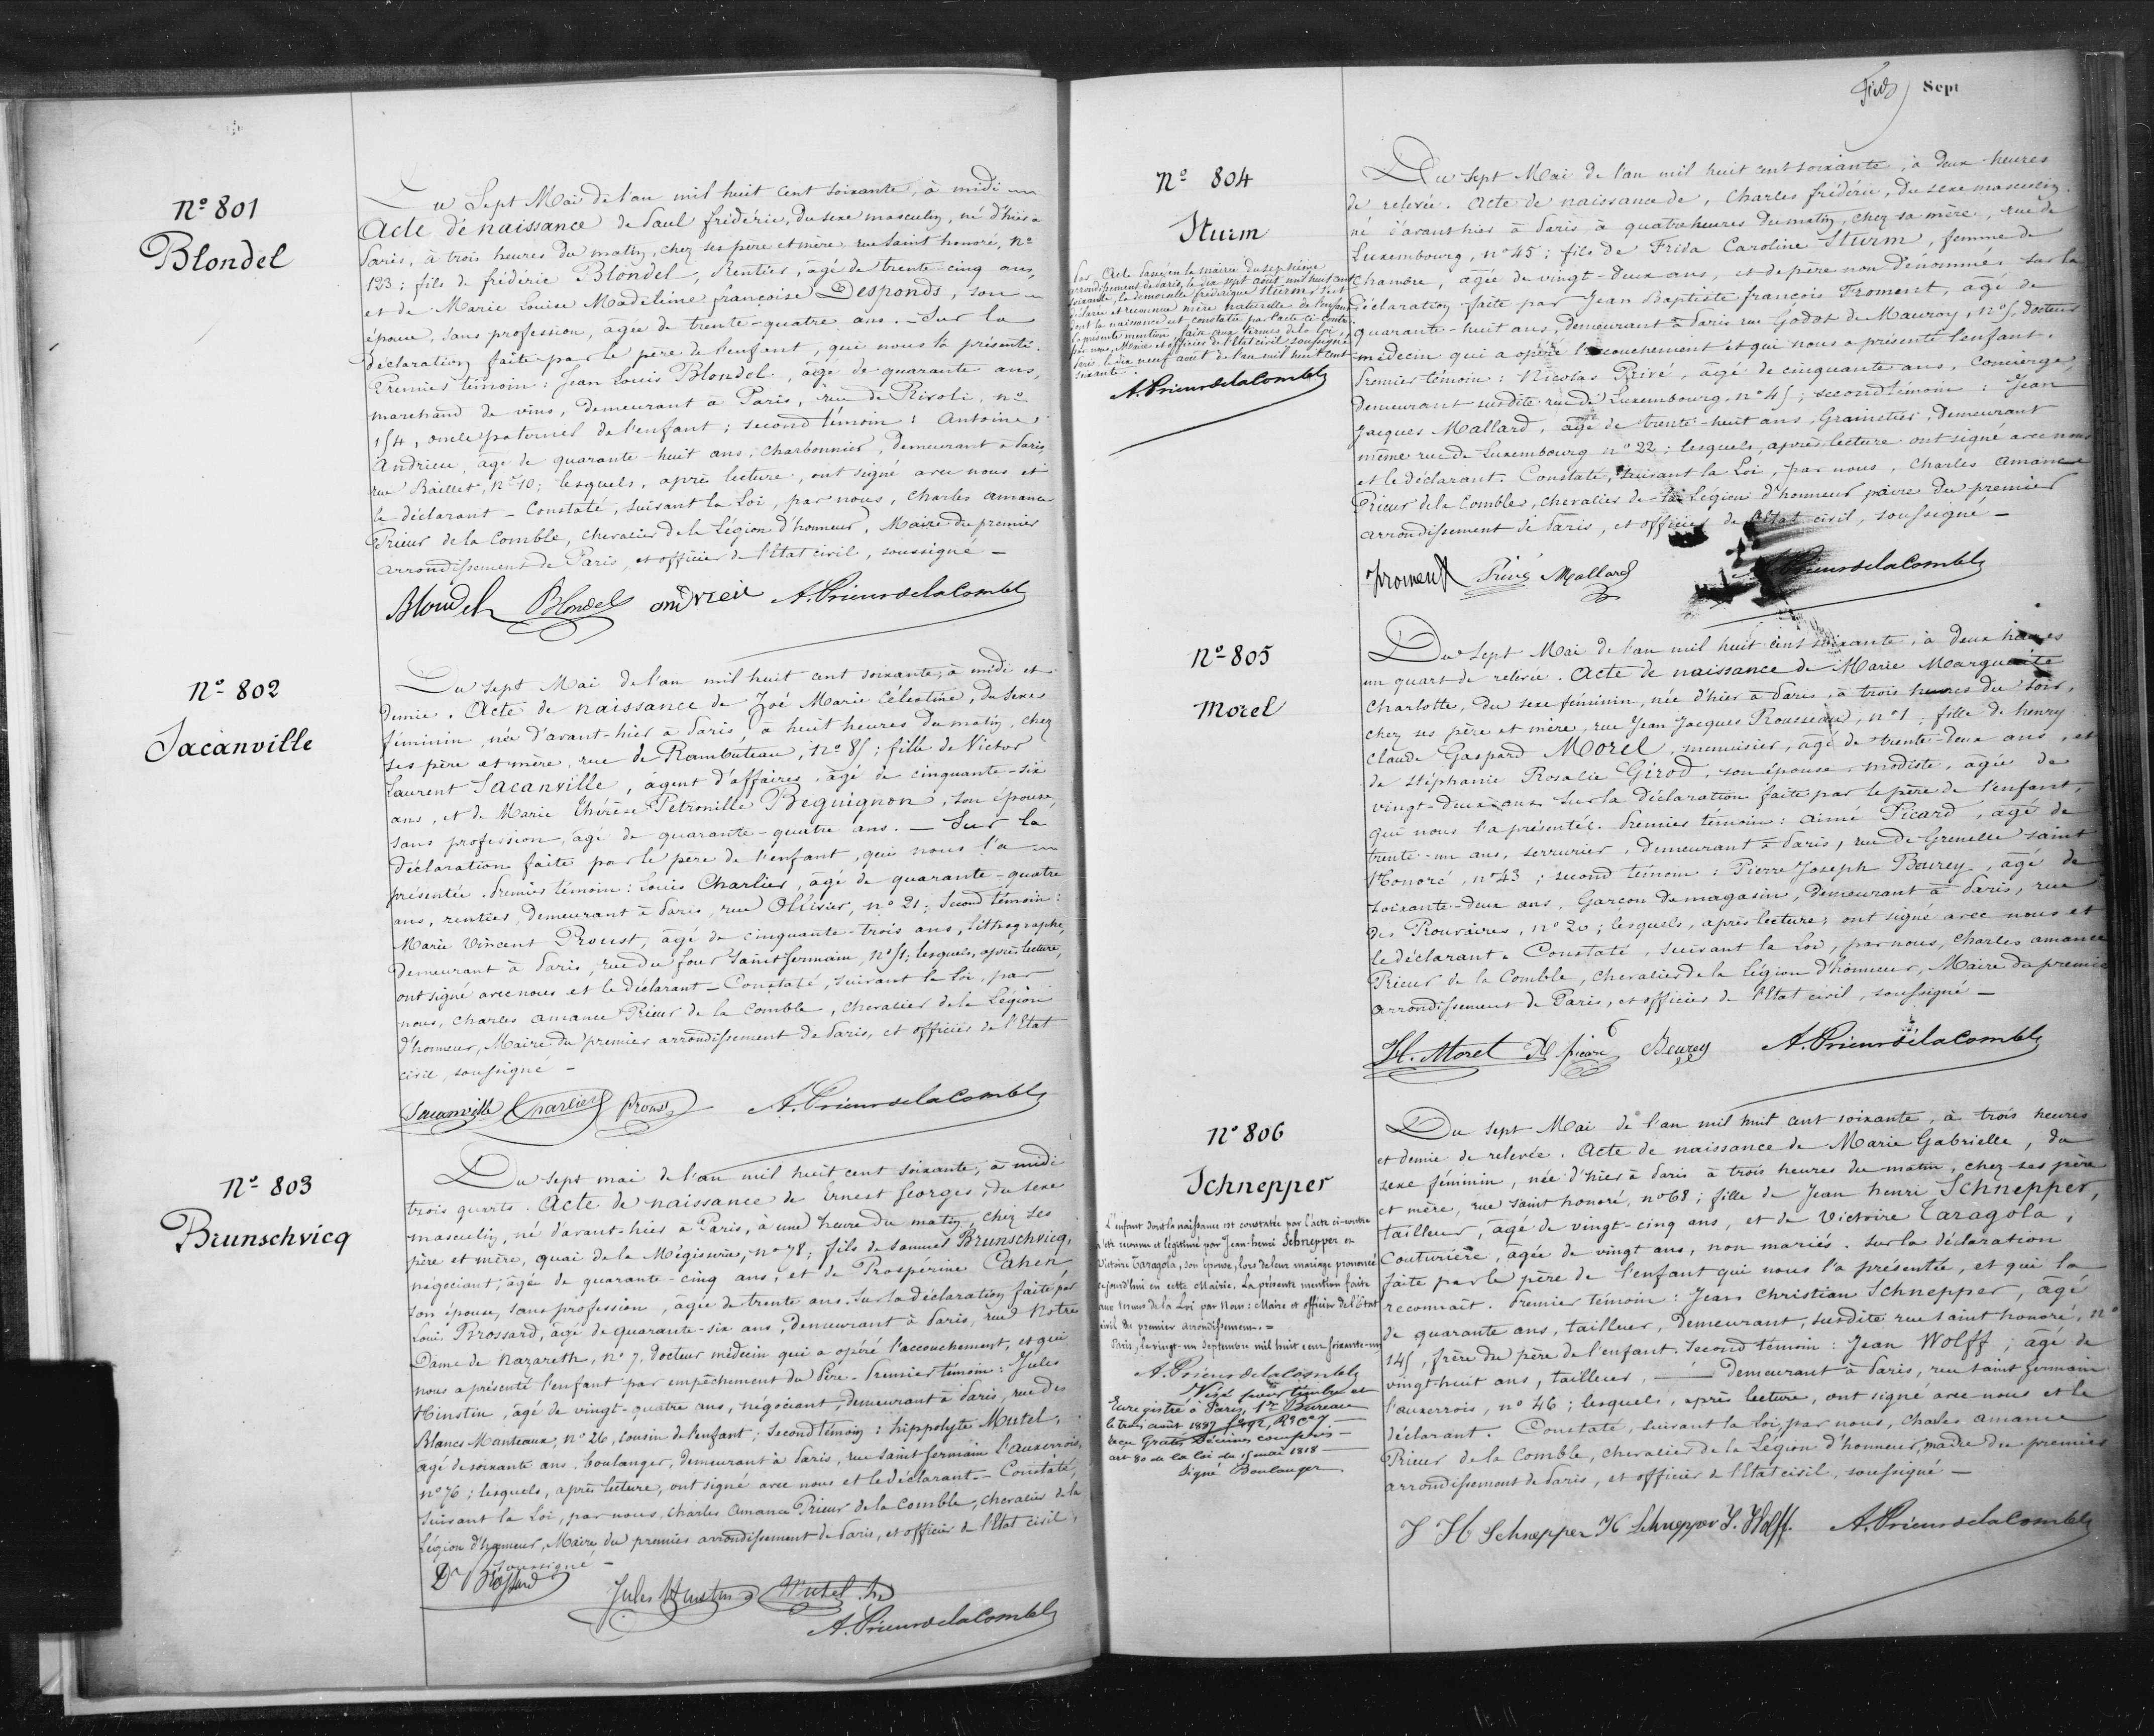 Nº 801
Blondel
Du Sept Mai de l'an mil huit cent soixante, à midi
Acte de naissance de Paul frédéric, du sexe masculin, né d'hier à
Paris, à trois heures du matin, chez ses père et mère rue saint honoré, nº
123; fils de frédéric Blondel, Rentier, âgé de trente-cinq ans,
et de Marie Louise Madeleine françoise Desponds, son
épouse, sans profession, agée de trente-quatre ans. - Sur la
déclaration faite par le père de l'enfant, qui nous l'a présenté.
Premier témoin: Jean Louis Blondel, âgé de quarante ans,
marchand de vins, demeurant à Paris, rue de Rivoli, nº
154, oncle paternel de l'enfant; second témoin: Antoine
Andrieu, âgé de quarante-huit ans, charbonnier, demeurant à Paris,
rue Baillet, nº 10; lesquels, après lecture, ont signé avec nous et
le déclarant - Constaté, suivant la Loi, par nous, Charles amance
Prieur de la Comble, chevalier de la Légion d'honneur, Maire du premier
arrondissement de Paris, et officier de l'Etat civil, soussigné -
Blondel Blondel andrieu A. Prieur de la Comble
Nº 802
Sacanville
Du sept Mai de l'an mil huit cent soixante, à midi et
demie. Acte de naissance de Zoé Marie Célestine, du sexe
féminin, née d'avant-hier à Paris, à huit heures du matin, chez
ses père et mère, rue de Rambuteau, nº 85; fille de Victor
Laurent Sacanville, agent d'affaires, âgé de cinquante-six
ans, et de Marie Thérèse Petronille Beguignon, son épouse,
sans profession, âgé de quarante-quatre ans. - Sur la
déclaration faite par le père de l'enfant, qui nous l'a
présentée. Premier témoin: Louis Charlier, âgé de quarante-quatre
ans, rentier, demeurant à Paris, rue Ollivier, nº 21; Second témoin:
Marie Vincent Proust, âgé de cinquante-trois ans, lithographe,
demeurant à Paris, rue du four Saint Germain, nº 51; lesquels, après lecture,
ont signé avec nous et le déclarant - Constaté, suivant la Loi, par
nous, Charles amance Prieur de la Comble, chevalier de la Légion
d'honneur, Maire du premier arrondissement de Paris, et officier de l'Etat
civil, soussigné -
Sacanville Charlier Proust A. Prieur de la Comble
Nº 803
Brunschvicq
Du sept mai de l'an mil huit cent soixante, à midi
trois quarts. Acte de naissance de Ernest Georges, du sexe
masculin, né d'avant-hier à Paris, à une heure du matin, chez ses
père et mère, quai de la Mégisserie, nº 78; fils de Samuel Brunschvicq,
négociant, âgé de quarante-cinq ans, et de Prospérine Cahen,
son épouse, sans profession, agée de trente ans. Sur la déclaration faite par
Louis Brossard, âgé de quarante-six ans, demeurant à Paris, rue Notre
Dame de Nazareth, nº 7, Docteur médecin qui a opéré l'accouchement, et qui
nous a présenté l'enfant par empêchement du Père - Premier témoin: Jules
Hinstin, âgé de vingt-quatre ans, négociant, demeurant à Paris, rue des
Blancs Manteaux, nº 26, cousin de l'enfant; Second témoin: hippolyte Mutel,
âgé de soixante ans, boulanger, demeurant à Paris, rue Saint Germain l'auxerrois,
nº 76; lesquels, après lecture, ont signé avec nous et le déclarant - Constaté,
suivant la Loi, par nous, Charles Amance Prieur de la Comble, chevalier de la
Légion d'honneur, Maire du premier arrondissement de Paris, et officier de l'Etat civil,
soussigné -
Dr Brossard Jules Hinstin Mutel
A. Prieur de la Comble
Sept
Nº 804
Sturm
Par Acte dressé en la mairie du septième
arrondissement de Paris, le dix sept août mil huit cent
soixante, la demoiselle frédérique Sturm s'est
déclarée et reconnue mère naturelle de l'enfant
dont la naissance est constatée par l'acte ci-contre
la présente mention faite aux termes de la loi,
par nous, Maire et officier de l'Etat civil soussigné
Paris, le dix neuf août de l'an mil huit cent
soixante.
A. Prieur de la Comble
Du sept Mai de l'an mil huit cent soixante, à deux heures
de relevée. Acte de naissance de, Charles frédéric, du sexe masculin.
né d'avant hier à Paris à quatre heures du matin, chez sa mère, rue de
Luxembourg, nº 45; fils de Frida Caroline Sturm, femme de
Chambre, âgée de vingt-deux ans, et de père non dénommé sur la
déclaration faite par Jean Baptiste françois Froment, âgé de
quarante-huit ans, demeurant à Paris rue Godot de Mauroy, nº 5, docteur
médecin qui a opéré l'accouchement et qui nous a présenté l'enfant.
Premier témoin: Nicolas Privé, âgé de cinquante ans, Concierge,
demeurant susdite rue de Luxembourg, nº 45; second témoin: Jean
Jacques Mallard, âgé de trente-huit ans, Grainetier, demeurant
même rue de Luxembourg nº 22; lesquels, après lecture ont signé avec nous
et le déclarant. Constaté, suivant la Loi, par nous, Charles amance
Prieur de la Comble, chevalier de la Légion d'honneur, maire du premier
arrondissement de Paris, et officier de l'Etat civil, soussigné -
Froment Privé Mallard A. Prieur de la Comble
Nº 805
Morel
Du Sept Mai de l'an mil huit cent soixante, à deux heures
un quart de relevée. Acte de naissance de Marie Marguerite
Charlotte, du sexe féminin, née d'hier à Paris, à trois heures du soir,
chez ses père et mère, rue Jean Jacques Rousseau, nº 1; fille de henry
Claude Gaspard Morel, menuisier, âgé de trente-deux ans, et
de Stéphanie Rosalie Girod, son épouse, modiste, agée de
vingt-deux ans sur la déclaration faite par le père de l'enfant,
qui nous l'a présentée. Premier témoin: Aimé Picard, âgé de
trente-un ans, serrurier, demeurant à Paris, rue de Grenelle saint
Honoré, nº 43; second témoin: Pierre Joseph Beurey, âgé de
soixante-deux ans, Garçon de magasin, demeurant à Paris, rue
des Prouvaires, nº 20; lesquels, après lecture, ont signé avec nous et
le déclarant. Constaté, suivant la Loi, par nous, Charles amance
Prieur de la Comble, chevalier de la Légion d'honneur, Maire du premier
arrondissement de Paris, et officier de l'Etat civil, soussigné -
H. Morel picard Beurey A. Prieur de la Comble
Nº 806
Schnepper
L'enfant dont la naissance est constatée par l'acte ci-contre
a été reconnu et légitimé par Jean-henri Schnepper et
Victoire Taragola, son épouse, lors de leur mariage prononcé
cejourd'hui en cette Mairie. La présente mention faite
aux termes de la Loi par Nous: Maire et officier de l'Etat
civil du premier arrondissement. =
Paris, le vingt-un septembre mil huit cent soixante-un
A. Prieur de la Comble
Visé pour timbre et
Enregistré à Paris, 1er Bureau
le trois août 1887
reçu Gratis, Décimes compris -
art 80 de la loi du 15 mai 1818 -
Signé Boulanger
Du sept Mai de l'an mil huit cent soixante, à trois heures
et demie de relevée. Acte de naissance de Marie Gabrielle, du
sexe féminin, née d'hier à Paris à trois heures du matin, chez ses père
et mère, rue saint honoré, nº 68; fille de Jean henri Schnepper,
tailleur, âgé de vingt-cinq ans, et de Victoire Taragola,
Couturière, âgée de vingt ans, non mariés. Sur la déclaration
faite par le père de l'enfant qui nous l'a présentée, et qui la
reconnaît. Premier témoin: Jean Christian Schnepper, âgé
de quarante ans, tailleur, demeurant, susdite rue saint honoré, nº
145, frère du père de l'enfant. Second témoin: Jean Wolff; âgé de
vingt huit ans, tailleur, — demeurant à Paris, rue saint germain
l'auxerrois, nº 46; lesquels, après lecture, ont signé avec nous et le
déclarant. Constaté, suivant la Loi, par nous, Charles amance
Prieur de la Comble, chevalier de la Légion d'honneur, maire du premier
arrondissement de Paris, et officier de l'Etat civil, soussigné -
J H Schnepper Schnepper J. Wolff. A. Prieur de la Comble